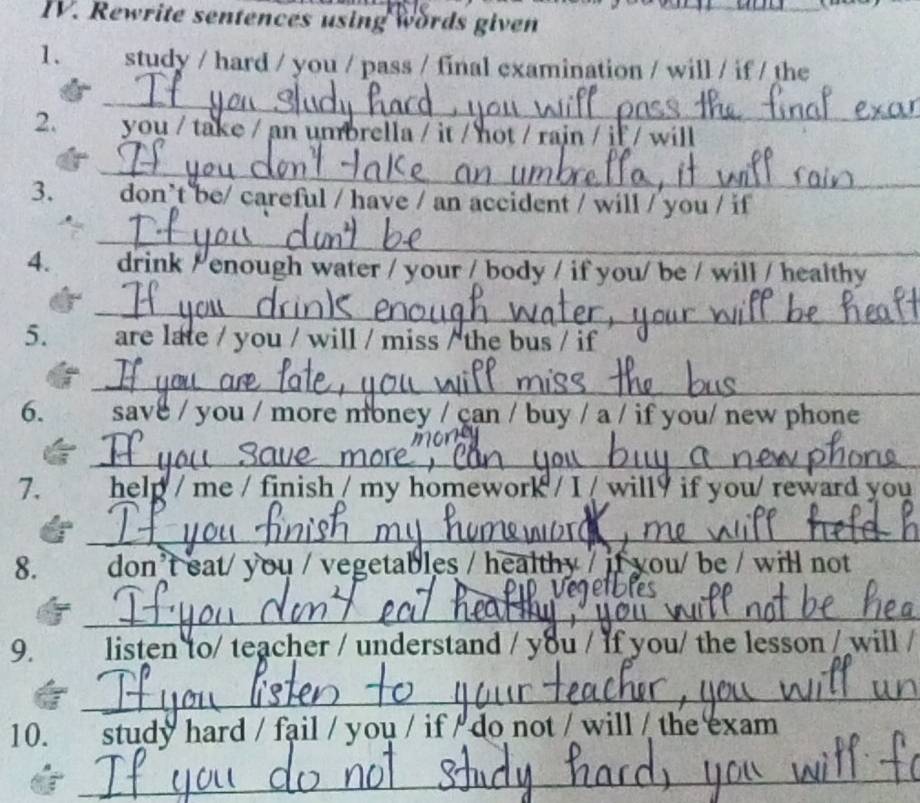 IV. Rewrite sentences using words given
1. study / hard / you / pass / final examination / will / if / the
If you study hard, you will pass the final exam
2. you / take / an umbrella / it / not / rain / if / will
If you don't take an umbrella, it will rain
3. don't be/ careful / have / an accident / will / you / if
If you don't be
4. drink / enough water / your / body / if you/ be / will / healthy
If you drink enough water, your will be healt
5. are late / you / will / miss / the bus / if
If you are late, you will miss the bus
6. save / you / more money / can / buy / a / if you/ new phone
money
If you save more, can you buy a new phone
7. help / me / finish / my homework / I / will / if you/ reward you
If you finish my homework, me will held h
8. don't eat/ you / vegetables / healthy / if you/ be / will not
vegetbles
If you don't eat healthy, you will not be hea
9. listen to/ teacher / understand / you / if you/ the lesson / will /
If you listen to your teacher, you will un
10. study hard / fail / you / if / do not / will / the exam
If you do not study hard, you will fa